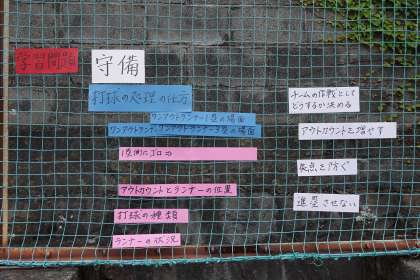 学習問題
守備
打球の処理の仕方
ワンアウトランナー1塁の場面
ワンアウトランナー
ワンアウトランナー3塁の場面
1塁側にゴロ⇒
アウトカウントとランナーの位置
打球の種類
ランナーの状況
チームの作戦として
どうするか決める
アウトカウントを増やす
失点を防ぐ
進塁させない